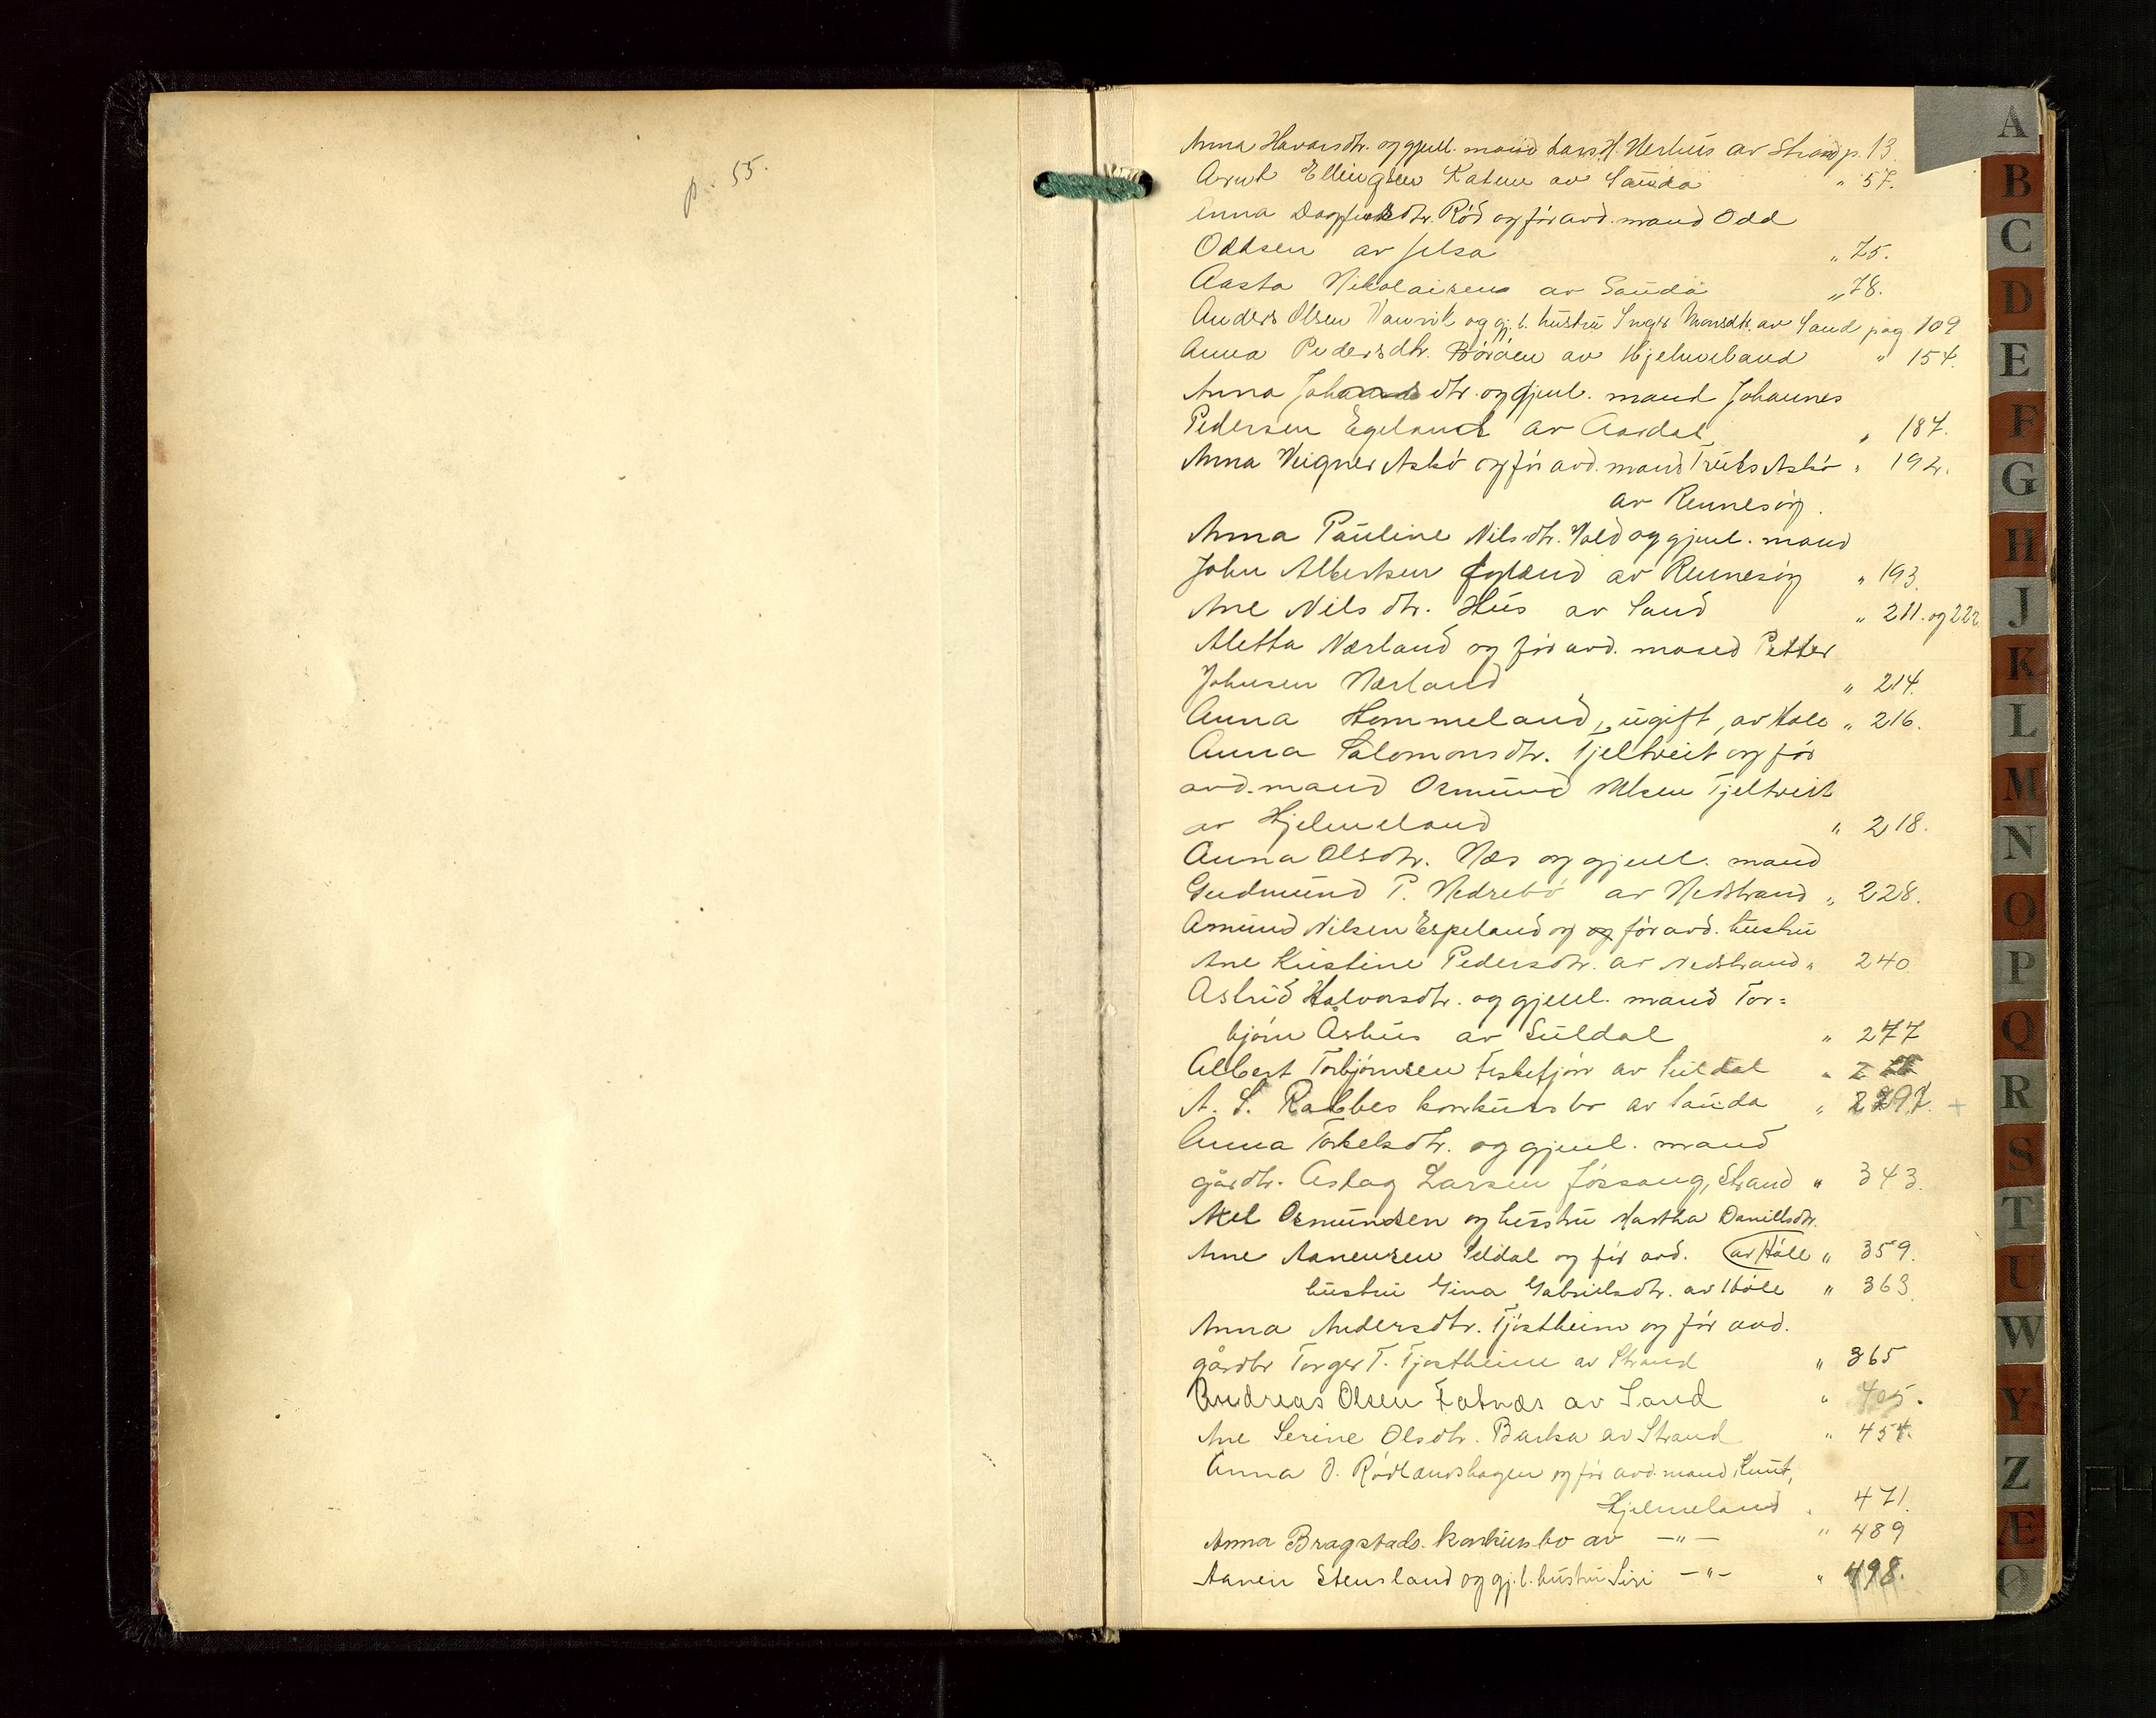 p. 55.
Anna Havarsdtr. og gjenl. mand Lars H. Nerhus av Strand p. 13.
Arnt Ellingsen Katnu av Sauda " 57.
Anna Dagfinsdtr. Rød og før avd. mand Odd
Oddsen av Jelsa " 75.
Aasta Nikolaisen av Sauda " 78.
Anders Olsen Vanvik og gj. l. hustru Inger Monsdtr. av Sand pag 109
Anna Pedersdtr. Børøen av Hjelmeland " 154.
Anna Johannesdtr. og gjenl. mand Johannes
Pedersen Egeland av Aardal " 187.
Anna Askø og før avd. mand Truls Askø " 192.
av Rennesøy.
Anna Pauline Nilsdtr. Vold og gjenl. mand
John Albertsen av Rennesøy " 193.
Ane Nilsdtr. Hus av Sand " 211. og 222
Aletta Nærland og før avd. mand Petter
Johnsen Nærland " 214.
Anna Hommeland, ugift, av Høle " 216.
Anna Salomonsdtr. Tjeltveit og før
avd. mand Osmund Nilsen Tjeltveit
av Hjelmeland " 218.
Anna Olsdtr. Næs og gjenl. mand
Gudmund P. Nedrebø av Nedstrand " 228.
Amund Nilsen Espeland og og før avd. hustru
Ane Kristine Pedersdtr. av Nedstrand " 240
Astrid Halvorsdtr. og gjenl. mand Tor=
bjørn Århus av Suldal " 277
Albert Torbjørnsen Fiskefjøn av Suldal "
A. S. Rabbes konkursbo av Sauda " 297. +
Anna Torkelsdtr. og gjenl. mand
gårdbr. Aslag Larsen Jøssang, Strand " 343.
Axel Osmundsen og hustru Martha Danielsdtr.
Ane Aanensen Seldal og før avd. av Høle " 359.
hustru Gina Gabrielsdtr. av Høle " 363.
Anna Andersdtr. Tjøstheim og før avd.
gårdbr Torger T. Tjøstheim av Strand " 365
Andreas Olsen Fatnæs av Sand " 405.
Ane Serine Olsdtr. Barka av Strand " 454.
Anna O. Rødlandshagen og før avd. mand Knut,
Hjelmeland " 471.
Anna Bragstads konkursbo av — " — " 489
Aanen Stensland og gj. l. hustru Siri — " — " 498.
A
B
C
D
E
F
G
H
J
K
L
M
N
O
P
Q
R
S
T
U
W
Y
Z
Æ
Ø